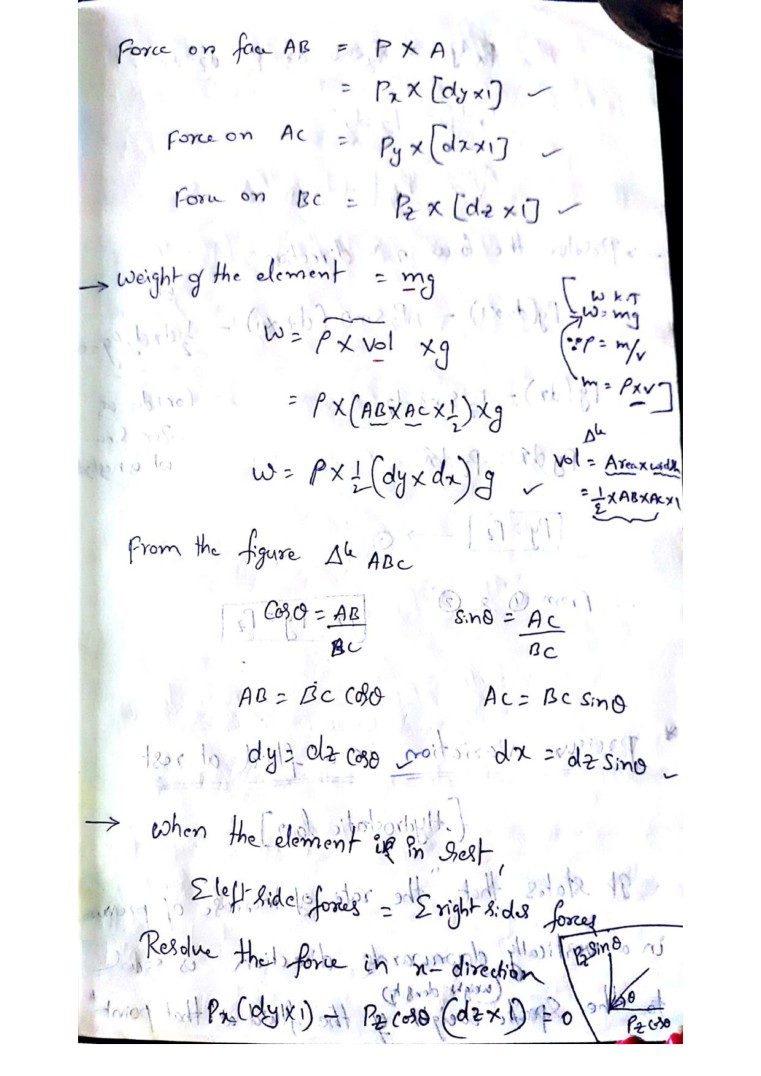 Force on face AB = P x A
= Px x [dy x 1] ✓
Force on AC = Py x [dx x 1] ✓
Force on BC = Pz x [dz x 1] ✓
→ weight of the element = mg
[ W K T
= W = mg
∵ ρ = m/v
m = ρxv ]
W = ρ x vol x g
= ρ x (AB x AC x 1/2) x g
Δle
vol = Area x width
= 1/2 x AB x AC x 1
W = ρ x 1/2 (dy x dx) g ✓
From the figure Δle ABC
Cosθ = AB/BC sinθ = AC/BC
AB = BC Cosθ AC = BC sinθ
dy = dz cosθ dx = dz sinθ ✓
→ when the element is in rest,
Σ left side forces = Σ right sides forces
Resolve the force in x-direction
Px (dy x 1) - Pz cosθ (dz x 1) = 0
Pz sinθ
θ
Pz cosθ